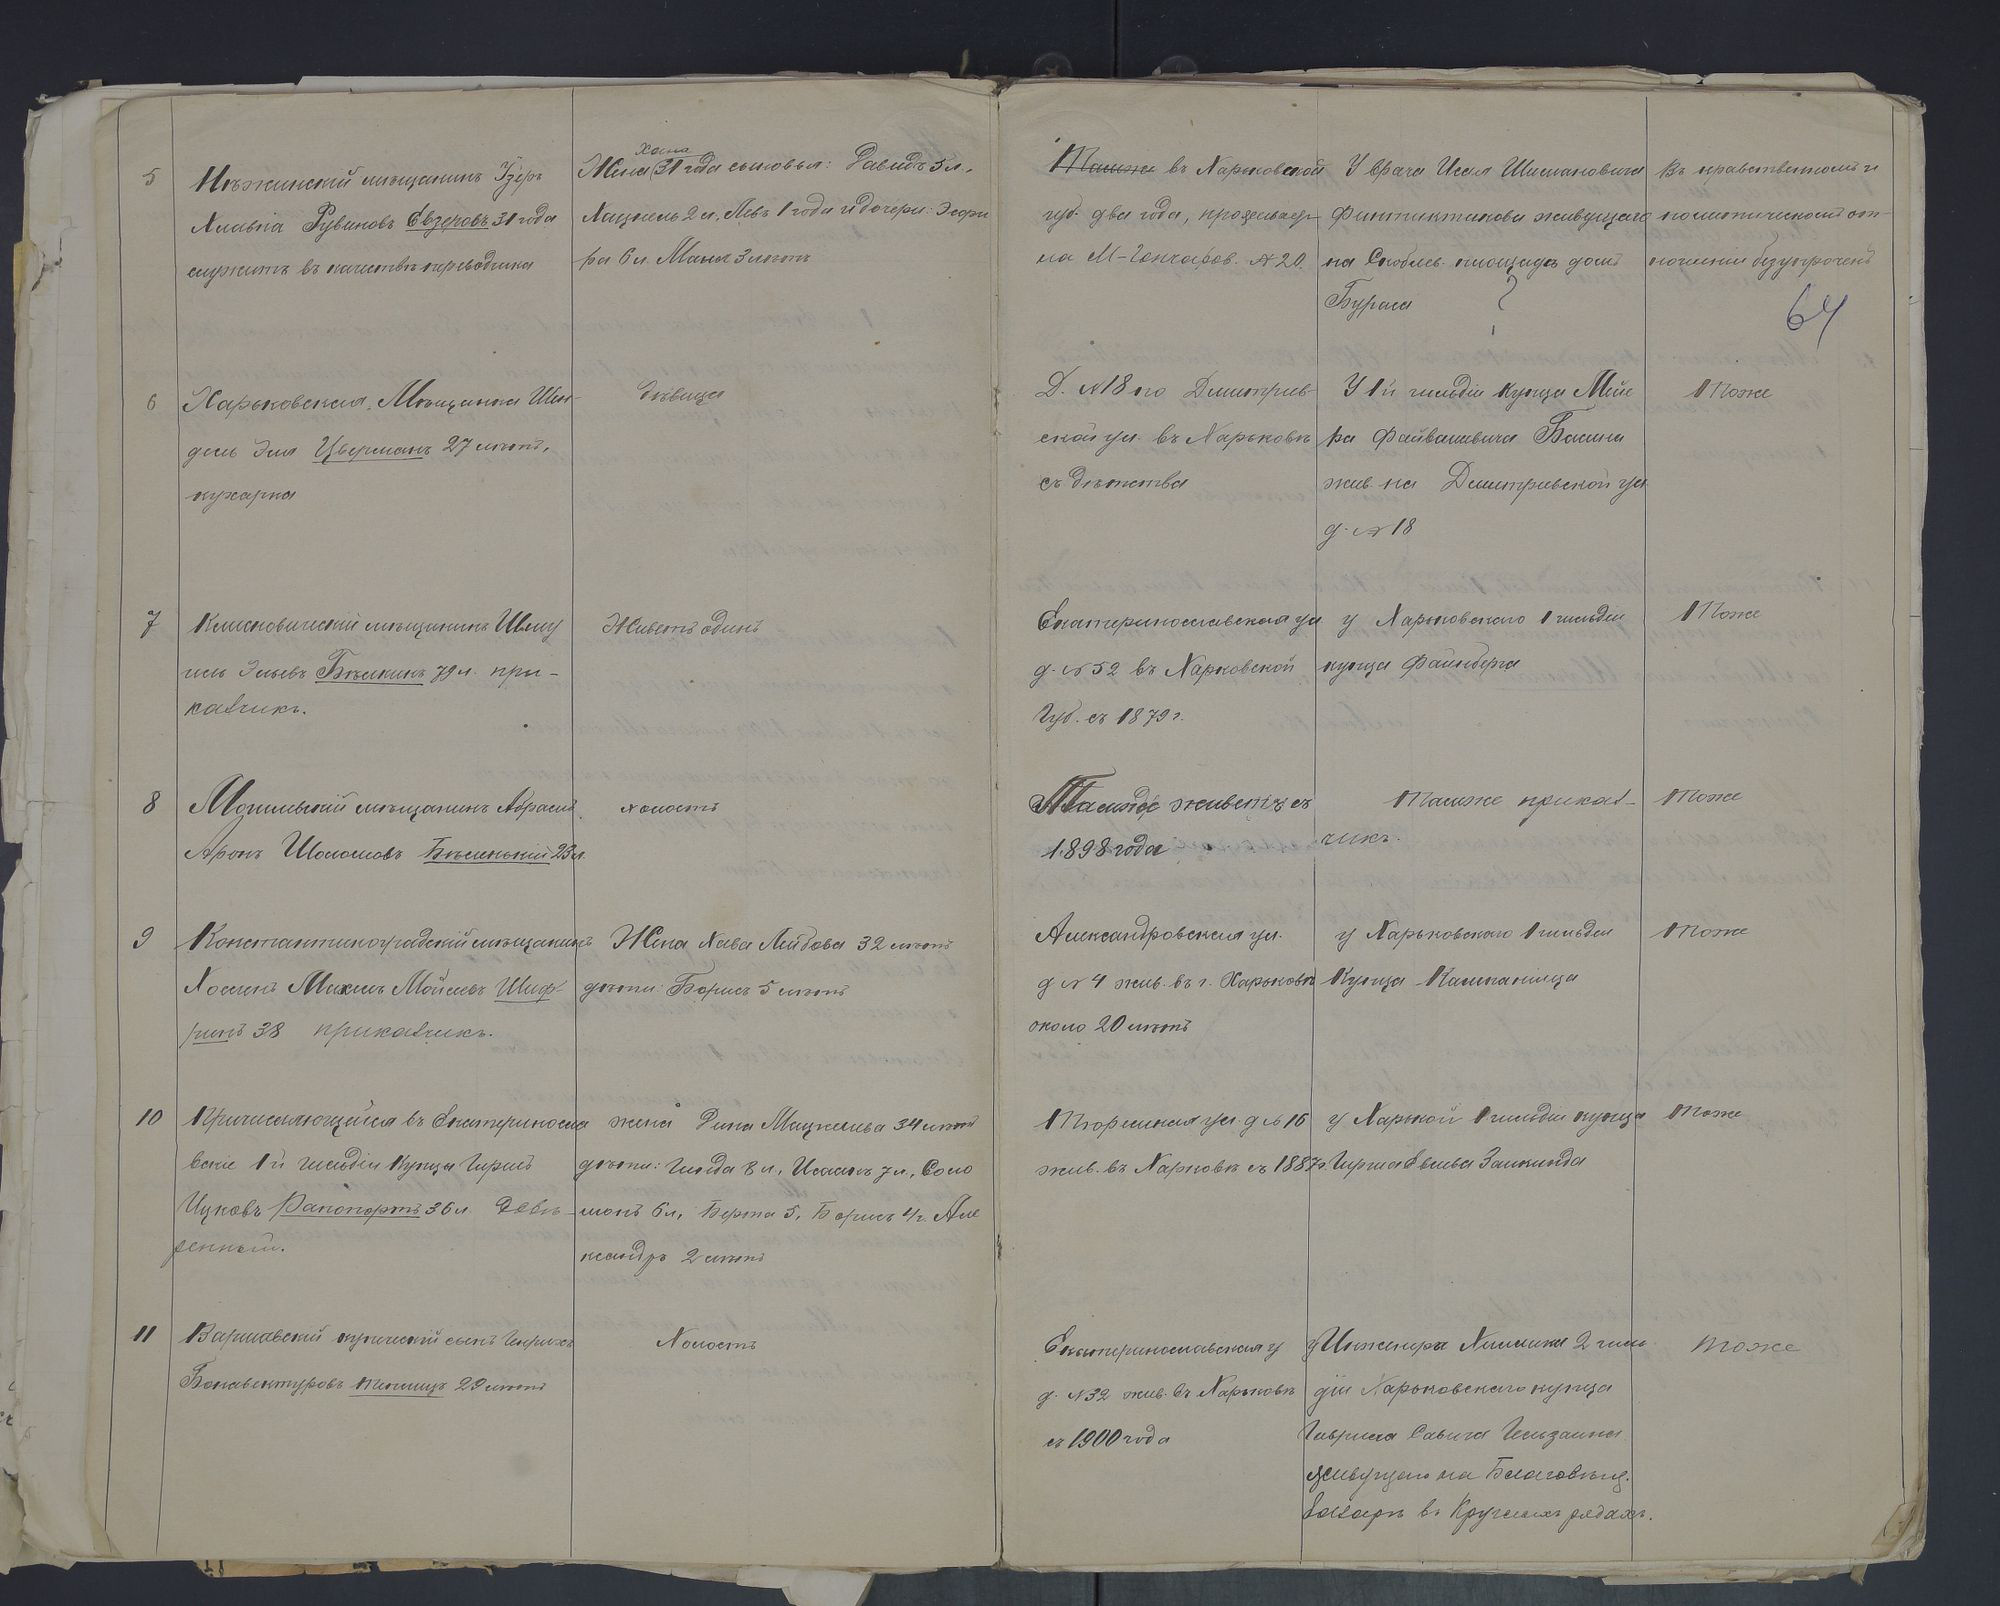 5
Нѣжинскій мѣщанинъ Узеръ
Рувиновъ Евзеровъ 31 года
служитъ въ качествѣ переводчика
Хана
Жена 31 года сыновья: Давидъ 5 л.
2 л. Левъ 1 года и дочери: Эсфи
ра 6 л. Маня 3 лѣтъ
Также въ Харьковской
губ. два года, проживаетъ
на М-Гончаров. № 20.
У врача Исая Шимановича
Финтиктикова живущаго
на Скоблев. площадь домъ
Бураса ?
Въ нравственномъ и
политическомъ от-
ношеніи безупреченъ
64
6
Харьковская Мѣщанка Шен-
дель Эля Цверманъ 27 лѣтъ,
кухарка
дѣвица
Д. № 18 по Дмитріев-
ской ул. въ Харьковѣ
съ дѣтства
У 1й гильдіи купца Мейе
ра Файвашевича Басина
жив. на Дмитріевской ул
д. № 18
Тоже
7
Климовическій мѣщанинъ Шму
иль Эльевъ Бѣлкинъ 79 л. при-
кащикъ.
Живетъ одинъ
Екатеринославская ул
д. № 52 въ Харковской
Губ. съ 1879 г.
у Харьковскаго 1 гильдіи
купца Файнберга
Тоже
8
Могилевскій мѣщанинъ Абрамъ
Аронъ Шоломовъ Бѣленькій 23 л.
холостъ
живетъ съ
1898 года
Также прикащ-
чикъ.
Тоже
9
Константиноградскій мѣщанинъ
Михель Мойсеевъ Шиф-
ринъ 38 прикащикъ.
Жена Хава Лейбова 32 лѣтъ
дѣти: Борисъ 5 лѣтъ
Александровская ул.
д № 4 жив. въ г. Харьковѣ
около 20 лѣтъ
у Харьковскаго 1 гильдіи
Купца Кампанійца
Тоже
10
Причисляющейся въ Екатеринослав
вскіе 1й гильдіи Купцы Гиршъ
Ицковъ Рапопортъ 36 л довѣ-
ренный.
жена Дина Мацкелева 34 лѣтъ
дѣти: Гинда 8 л, Исаакъ 7 л., Соло
монъ 6 л, Берта 5, Борисъ 4 г. Але
ксандръ 2 лѣтъ
Тюремная ул д № 16
жив. въ Харковѣ съ 1887 г.
у Харькой 1 гильдіи купца
Гирша Евлева Залкинда
Тоже
11
Варшавскій купеческій сынъ Генрихъ
Бонавентуровъ Теплицъ 29 лѣтъ
Холостъ
Екатеринославская у
д. № 32 жив. въ Харьковѣ
съ 1900 года
у Инженера Химика 2 гиль
діи Харьковскаго купца
Гавріила Савича Гельзаина
живущаго на Благовѣщ.
базарѣ въ Круглыхъ рядахъ.
тоже